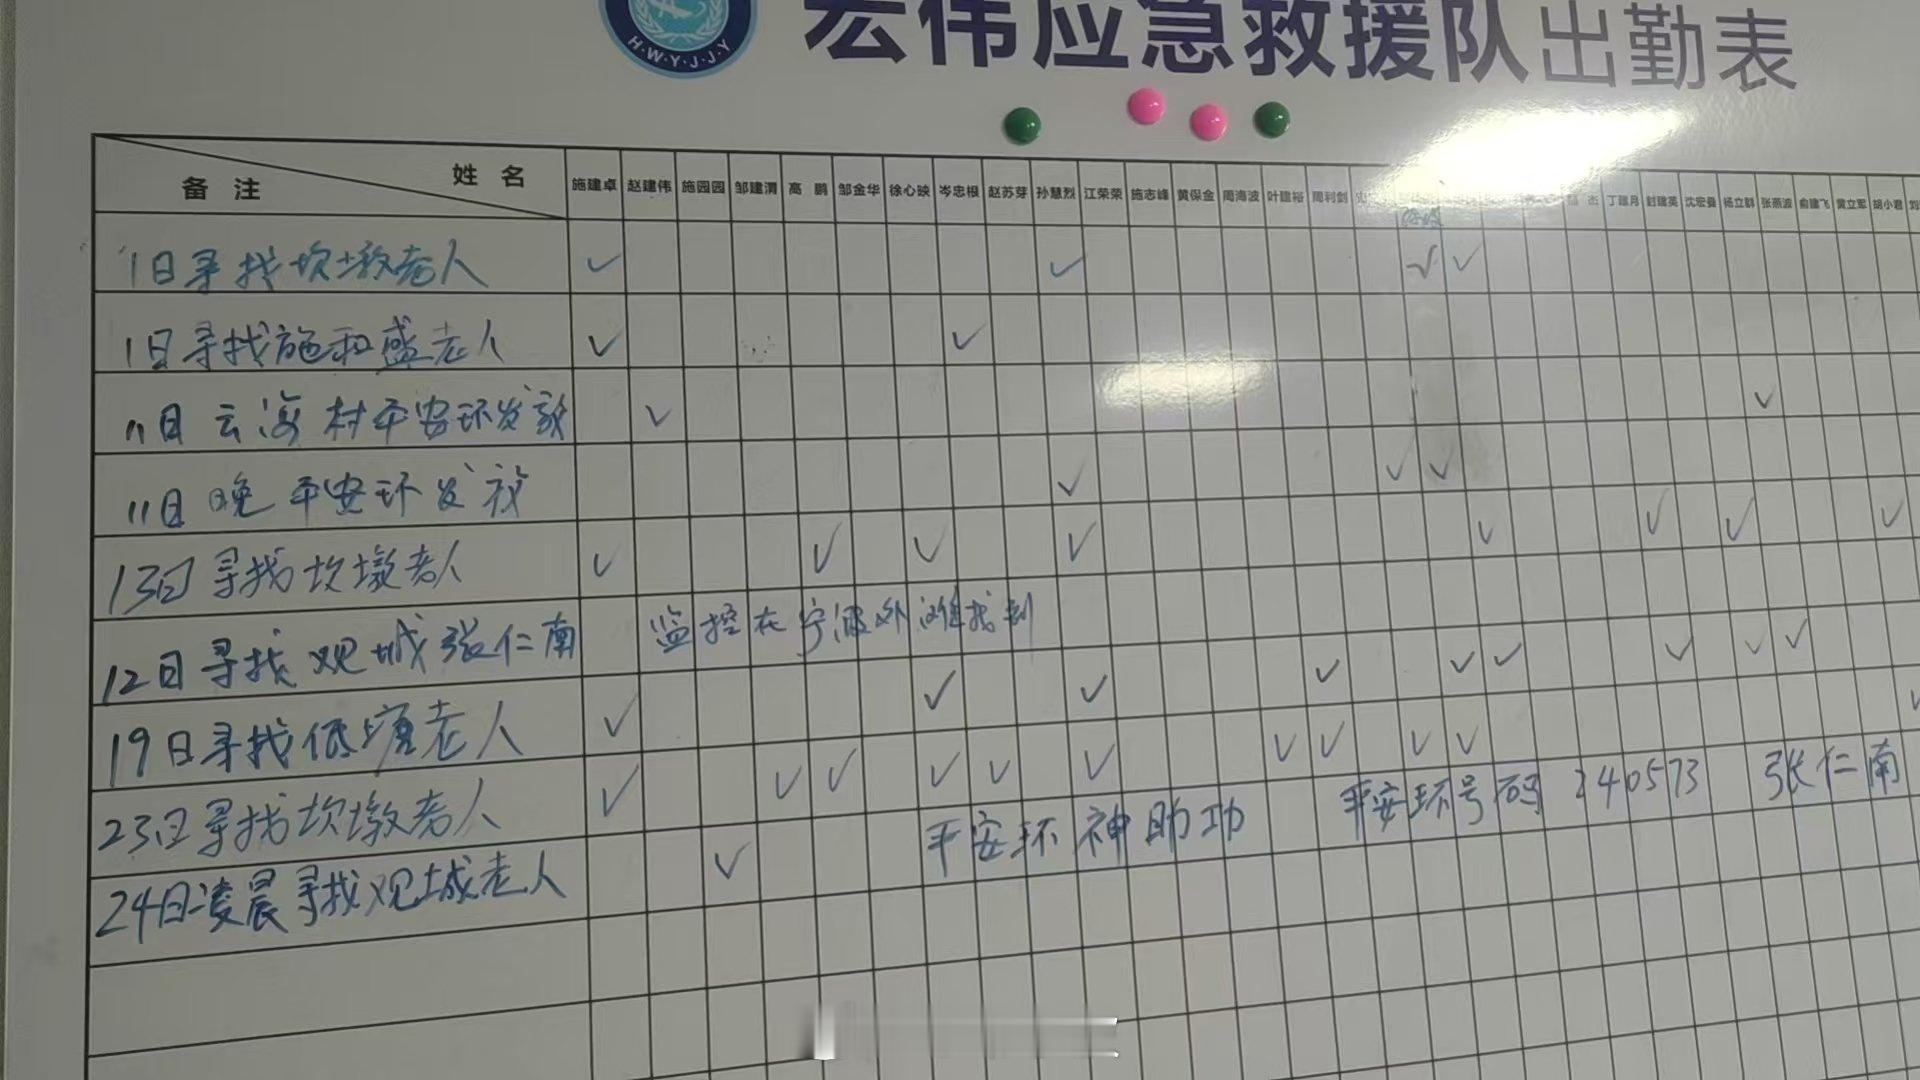 H·W·Y·J·J·Y
宏伟应急救援队出勤表
备 注 姓 名 施建卓 赵建伟 施园园 邹建渭 高 鹏 邹金华 徐心映 岑忠根 赵苏芽 孙慧烈 江荣荣 施志峰 黄保金 周海波 叶建裕 周利剑 杰 丁建月 封建英 沈宏曼 杨立群 张燕波 俞建飞 黄立军 胡小君
1日寻找坎墩老人 ✓ ✓ ✓ ✓
1日寻找施和盛老人 ✓ ✓
11日 云海村平安环发放 ✓ ✓
11日 晚 平安环发放 ✓ ✓ ✓
13日寻找坎墩老人 ✓ ✓ ✓ ✓ ✓ ✓ ✓ ✓
12日寻找观城张仁南 监控在宁波外滩找到
19日寻找低塘老人 ✓ ✓ ✓ ✓ ✓ ✓ ✓ ✓ ✓
23日寻找坎墩老人 ✓ ✓ ✓ ✓ ✓ ✓ ✓ ✓ ✓ ✓
24日凌晨寻找观城老人 ✓ 平安环神助功 平安环号码 240573 张仁南